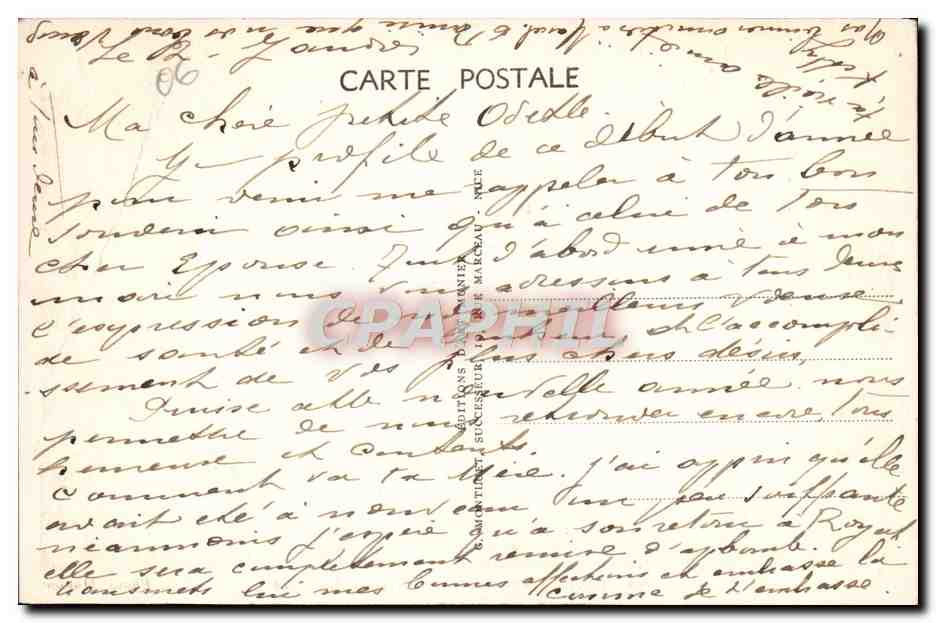 CARTE POSTALE
Ma chère petite Odette.
Je profite de ce début d'année
pour venir me rappeler à ton bon
souvenir ainsi qu'à celui de ton
cher Epouse. d'abord unie à mon
mari nous vous adressons à tous deux
l'expression de nos meilleurs vœux
de santé et de bonheur et l'accompli-
ssement de vos plus chers désirs.
Puisse cette nouvelle année nous
permettre de nous retrouver encore tous
heureux et contents.
Comment va ta Mère. J'ai appris qu'elle
avait été à nouveau un peu souffrante
néanmoins j'espère qu'a son retour à Royat
elle sera complètement remise d'aplomb.
transmets lui mes bonnes affections et embrasse la
comme je t'embrasse.
ta vieille amie
à tous deux
20
EDITIONS D'ART MUNIER
G. MONTICELLI, SUCCESSEUR, 10, RUE MARCEAU - NICE
CPAPHIL